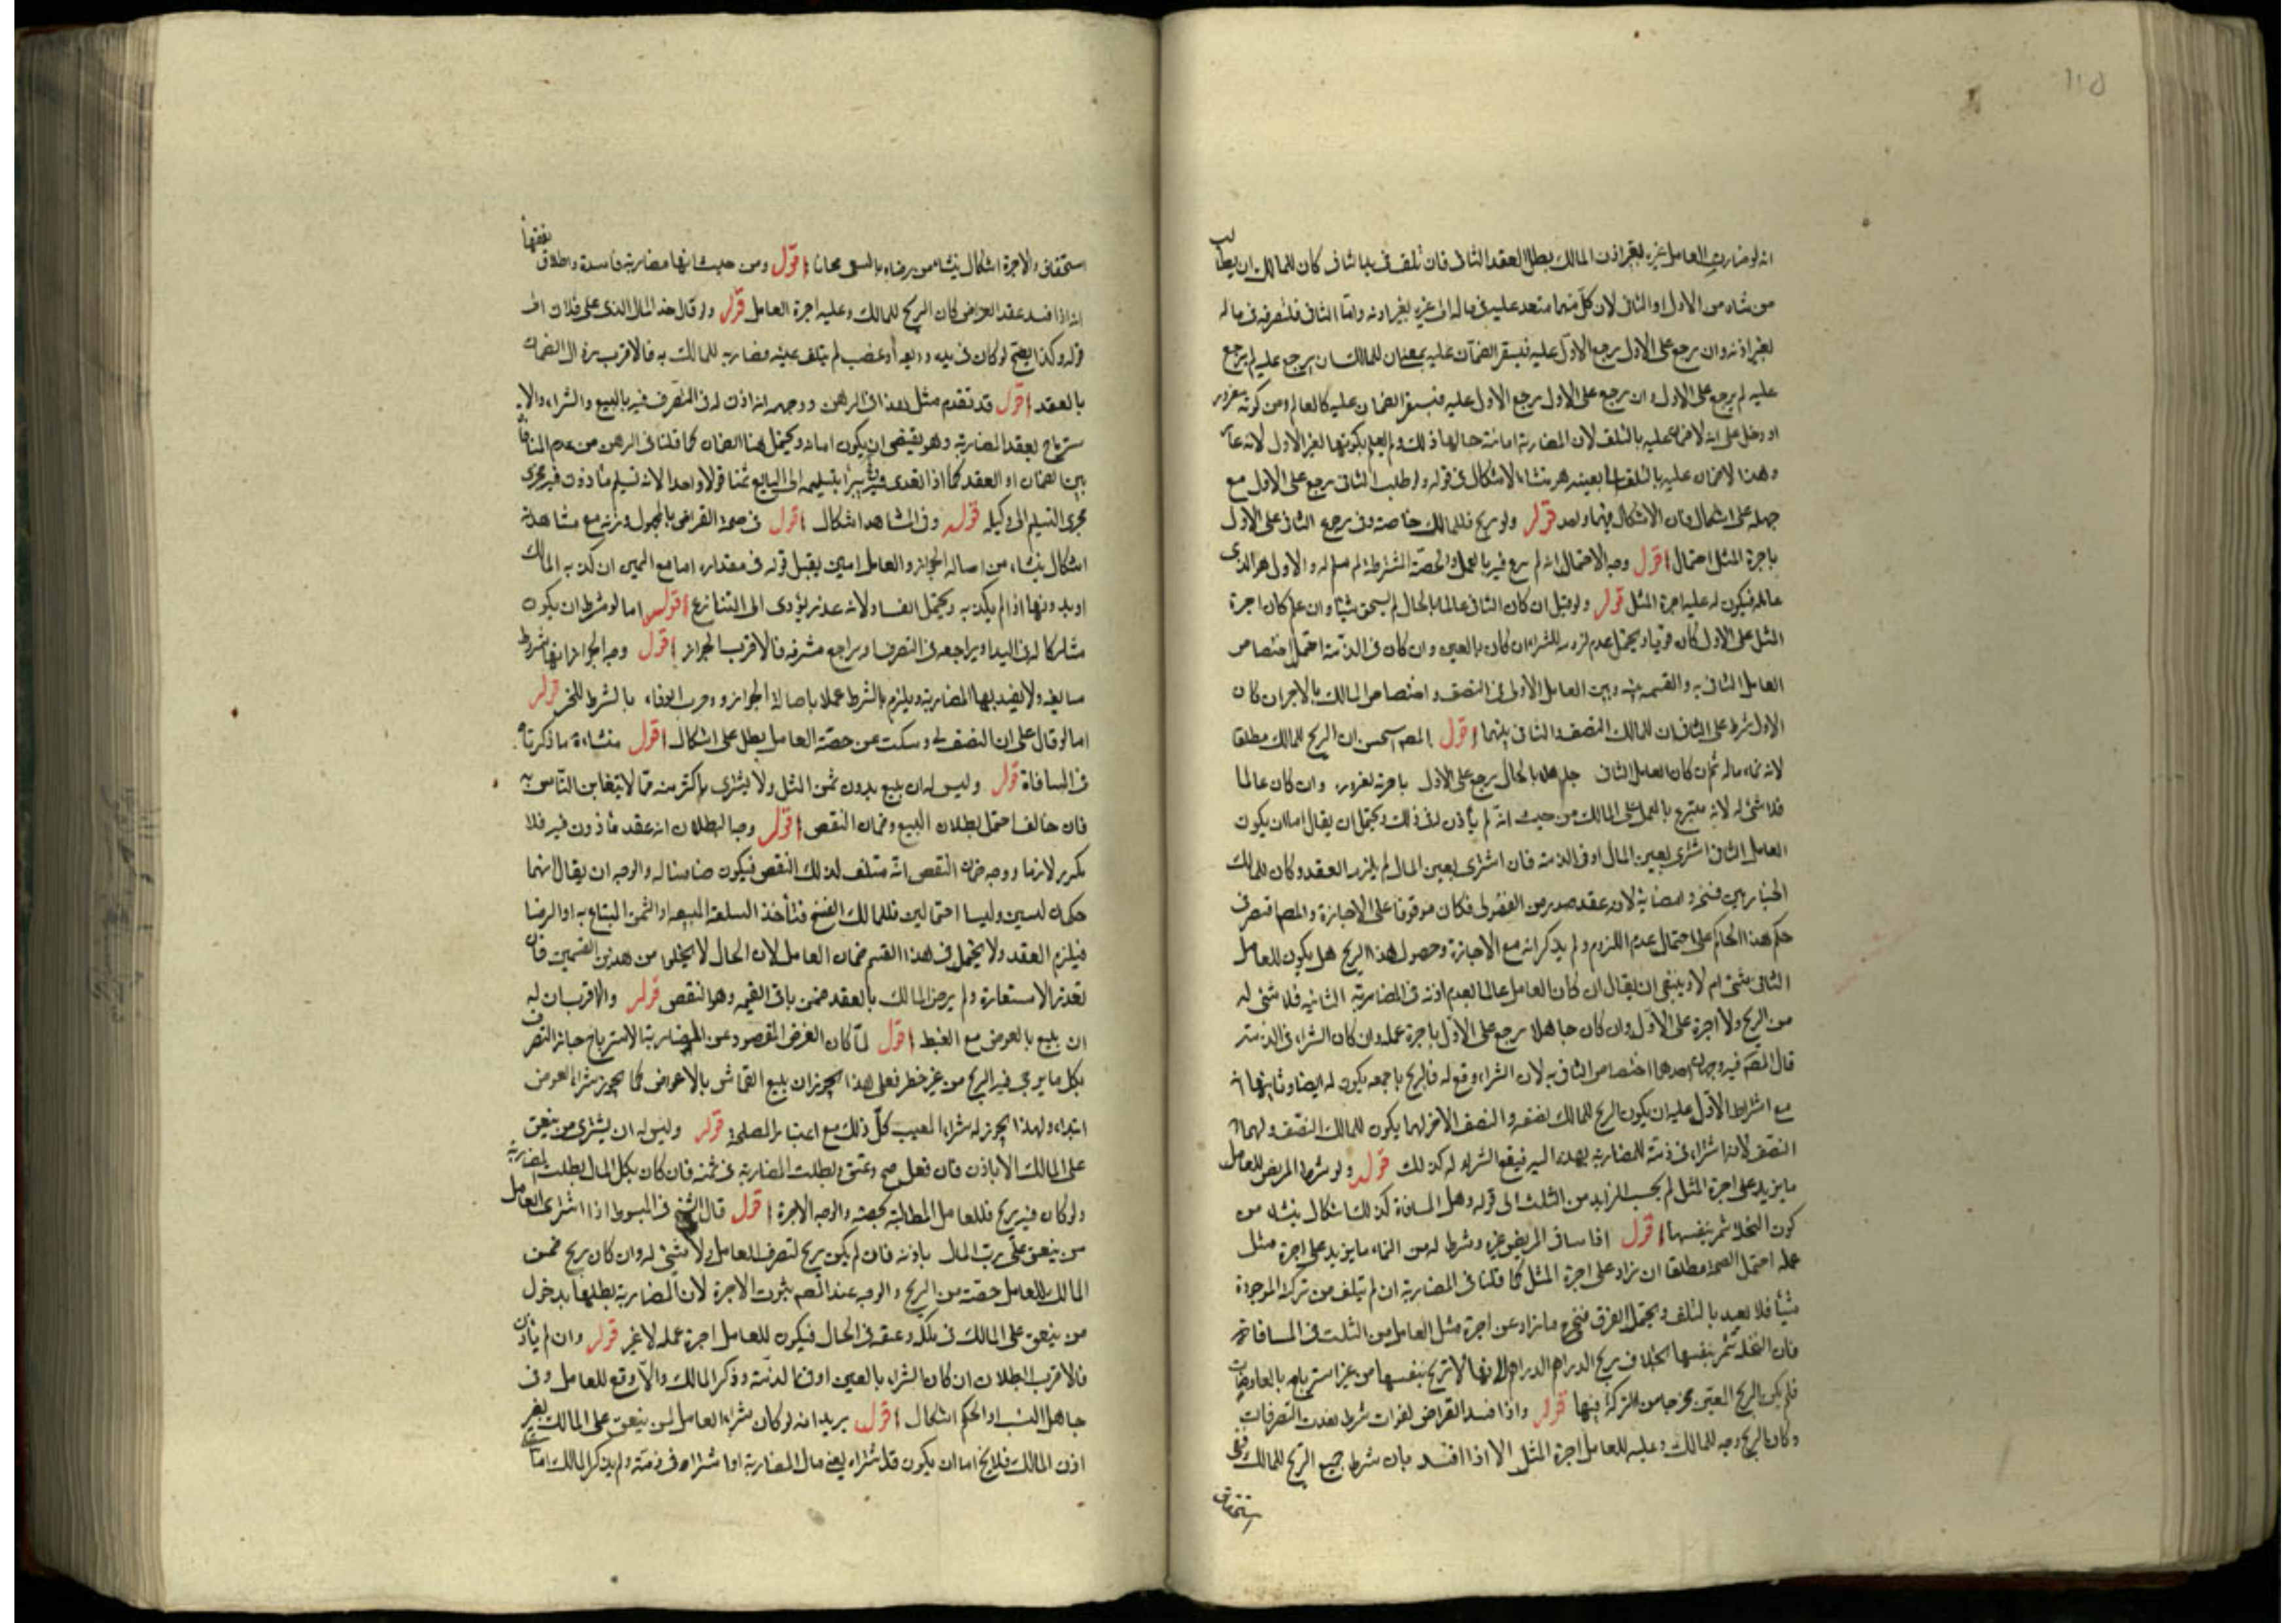 انه لو ضارب العامل غيره بغير اذن المالك بطل العقد الثانى فان تلف فى يد الثانى كان للمالك ان يطالب
من شاء من الاول او الثانى لان كل منهما متعد عليه فى ماله الى غيره بغير اذنه واما الثانى فلتصرفه فى ماله
بغير اذنه وان رجع على الاول رجع الاول عليه فيستقر الضمان عليه بمعنى ان للمالك ان يرجع عليه لم يرجع
عليه لم يرجع على الاول وان رجع على الاول رجع الاول عليه فيستقر الضمان عليه كالعالم ومن كونه مغرور
او دخل على انه لا ضمان عليه بالتلف لان المضاربة امانة حالها ذلك ولم يعلم بكونها لغير الاول لانه
وهذا لا ضمان عليه بالتلف بعينه هو منشاء الاشكال فى قوله ولو طلب الثانى رجع على الاول مع
جهله على اشكال فان الاشكال فيهما واحد قوله ولو ربح فللمالك خاصة وفى رجوع الثانى على الاول
باجرة المثل احتمال اقول وجه الاحتمال انه لم يتبرع فيه بالعمل والحصة المشترطة لم تسلم له والاول هو الذى
عامله فيكون له عليه اجرة المثل قوله ولو قيل ان كان الثانى عالما بالحال لم يستحق شيئا وان علم كان اجرة
المثل على الاول كان قويا ويحتمل عدم لزوم الشراء ان كان بالعين وان كان فى الذمة احتمل اختصاص
العامل الثانى به والقسمة بينه وبين العامل الاول فى النصف واختصاص المالك بالاجر ان كان
الاول شرط على الثانى ان للمالك النصف والثانى بينهما اقول المصـ استحسن ان الربح للمالك مطلقا
لانه نماء ماله ثم ان كان العامل الثانى جاهلا بالحال يرجع على الاول باجرته لغروره وان كان عالما
فلا شئ له لانه متبرع بالعمل على المالك من حيث انه لم يأذن له فى ذلك ويحتمل ان يقال اما ان يكون
العامل الثانى اشترى بعين المال او فى الذمة فان اشترى بعين المال لم يلزم العقد وكان للمالك
الخيار بين فسخه وامضائه لانه عقد صدر من الفضولى فكان موقوفا على الاجازة والمصـ اقتصر فى
حكم هذا الحكم على احتمال عدم اللزوم ولم يذكر انه مع الاجازة وحصول هذا الربح هل يكون للعامل
الثانى شئ ام لا وينبغى ان يقال ان كان العامل عالما بعدم اذنه فى المضاربة الثانية فلا شئ له
من الربح ولا اجرة على الاول وان كان جاهلا رجع على الاول باجرة عمله وان كان الشراء فى الذمة
قال المصـ فيه وجهان احدهما اختصاص الثانى به لان الشراء وقع له فالربح باجمعه يكون له ايضا وثانيهما
مع اشتراط الاول عليه ان يكون الربح للمالك نصفه والنصف الاخر لهما يكون للمالك النصف ولهما
النصف لانه اشتراه فى ذمته للمضاربة بهذا السير فيقع الشراء له كذلك قوله ولو شرط المريض للعامل
ما يزيد على اجرة المثل لم يحسب الزايد من الثلث الى قوله وهل المساقاة كذلك اشكال ينشاء من
كون النخلة تثمر بنفسها اقول اذا ساقى المريض غيره وشرط له من النماء ما يزيد على اجرة مثل
عمله احتمل الصحة مطلقا ان زاد على اجرة المثل كما قلنا فى المضاربة ان لم يتلف من تركته الموجودة
شيئا فلا يعيد بالتلف ويحتمل الفرق فتخرج ما زاد عن اجرة مثل العامل من الثلث فى المساقاة
فان النخلة تثمر بنفسها بخلاف ربح الدراهم الدراهم فانها لا تربح بنفسها من غير استرباح بالمعاوضات
فلم يكن الربح المعين مخرجا من التركة فيها قوله واذا فسد القراض لفوات شرط نفذت التصرفات
وكان الربح وجه للمالك وعليه للعامل اجرة المثل الا اذا فسد بان شرط جميع الربح للمالك ففى
استحقاق
استحقاق الاجرة اشكال ينشاء من رضاه بالسعى مجانا اقول ومن حيث انها مضاربة فاسدة واطلاق فقهائنا
انه اذا فسد عقد القراض كان الربح للمالك وعليه اجرة العامل قوله ولو قال خذ المال الذى على فلان الى
قوله وكذا يصح لو كان فى يده وديعه او غصب لم يتلف عينه مضاربه للمالك به فالاقرب برة ال الضمان
بالعقد اقول قد تقدم مثل هذا فى الرهن ووجهه انه اذن له فى التصرف فيه بالبيع والشراء والا
سترباح بعقد المضاربة وهو يقتضى ان يكون امانه ويحتمل هنا الضمان كما قلنا فى الرهن من عدم المنافاة
بين الضمان او العقد كما اذا تعدى فيه يبرأ بتسليمه الى البايع ثمنا قولا واحدا لانه تسليم مأذون فيه مجرى
مجرى التسليم الى وكيله قوله وفى المشاهد اشكال اقول فى صحة القراض بالمجهول وزنه مع مشاهدته
اشكال ينشاء من اصالة الجواز والعامل امين يقبل قوله فى مقداره اما مع اليمين ان كذبه المالك
او بدونها اذا لم يكذبه ويحتمل الفساد لانه غرر يؤدى الى التنازع اقول اما لو شرط ان يكون
مشاركا له فى اليد او يراجعه فى التصرف او يراجع مشرفه فالاقرب الجواز اقول وجه الجواز انها شروط
سايغه ولا يفيد بها المضاربة ويلزم بالشرط عملا باصالة الجواز ووجوب الوفاء بالشرط للخبر قوله
اما لو قال على ان النصف لى وسكت عن حصة العامل بطل على اشكال اقول منشاءه ما ذكرناه
فى المساقاة قوله وليس له ان يبيع بدون ثمن المثل ولا يشترى باكثر منه مما لا يتغابن الناس به
فان خالف احتمل بطلان البيع وضمان النقص اقول وجه البطلان انه عقد مأذون فيه فلا
يكون لازما ووجه ضمان النقص انه متلف لذلك النقص فيكون ضامنا له والوجه ان يقال انهما
حكمان ليسين وليسا احتمالين فللمالك الفسخ فتأخذ السلعة المبيعه او الثمن المبتاع به او الرضا
فيلزم العقد ولا يحتمل فى هذا القسم ضمان العامل لان الحال لا يخلى من هذين القسمين فان
تعذر الاستعارة ولم يرض المالك بالعقد ضمن باقى القيمه وهو النقص قوله والاقرب ان له
ان يبيع بالعرض مع الغبط اقول لما كان الغرض المقصود من المضاربة الاسترباح جاز التصرف
بكل ما يرجى فيه الربح من غير خطر فعلى هذا يجوز ان يبيع القماش بالاعواض كما يجوز شراء العوض
ابتداء ولهذا يجوز له شراء المعيب كل ذلك مع اعتبار المصلحة قوله وليس له ان يشترى من ينعتق
على المالك الا باذن فان فعل صح وعتق وبطلت المضاربة فى ثمنه فان كان بكل المال بطلت المضاربة
ولو كان فيه ربح فللعامل المطالبة بحصته والوجه الاجرة اقول قال الشيخ فى المبسوط اذا اشترى العامل
من ينعتق على رب المال باذنه فان لم يكن ربح لتصرف العامل ولا شئ له وان كان ربح ضمن
المالك للعامل حصته من الربح والوجه عند المصـ ثبوت الاجرة لان المضاربة يطلها بدخول
من ينعتق على المالك فى ملكه وعتقه فى الحال فيكون للعامل اجرة عمله لا غير قوله وان لم يأذن
فالاقرب البطلان ان كان الشراء بالعين او فى الذمة وذكر المالك والا وقع للعامل وفى
جاهل النسب او الحكم اشكال اقول يريد انه لو كان شراء العامل لمن ينعتق على المالك بغير
اذن المالك فلا يخ اما ان يكون قد شراه بعين مال المضاربة او اشتراه فى ذمته ولم يذكر المالك اما